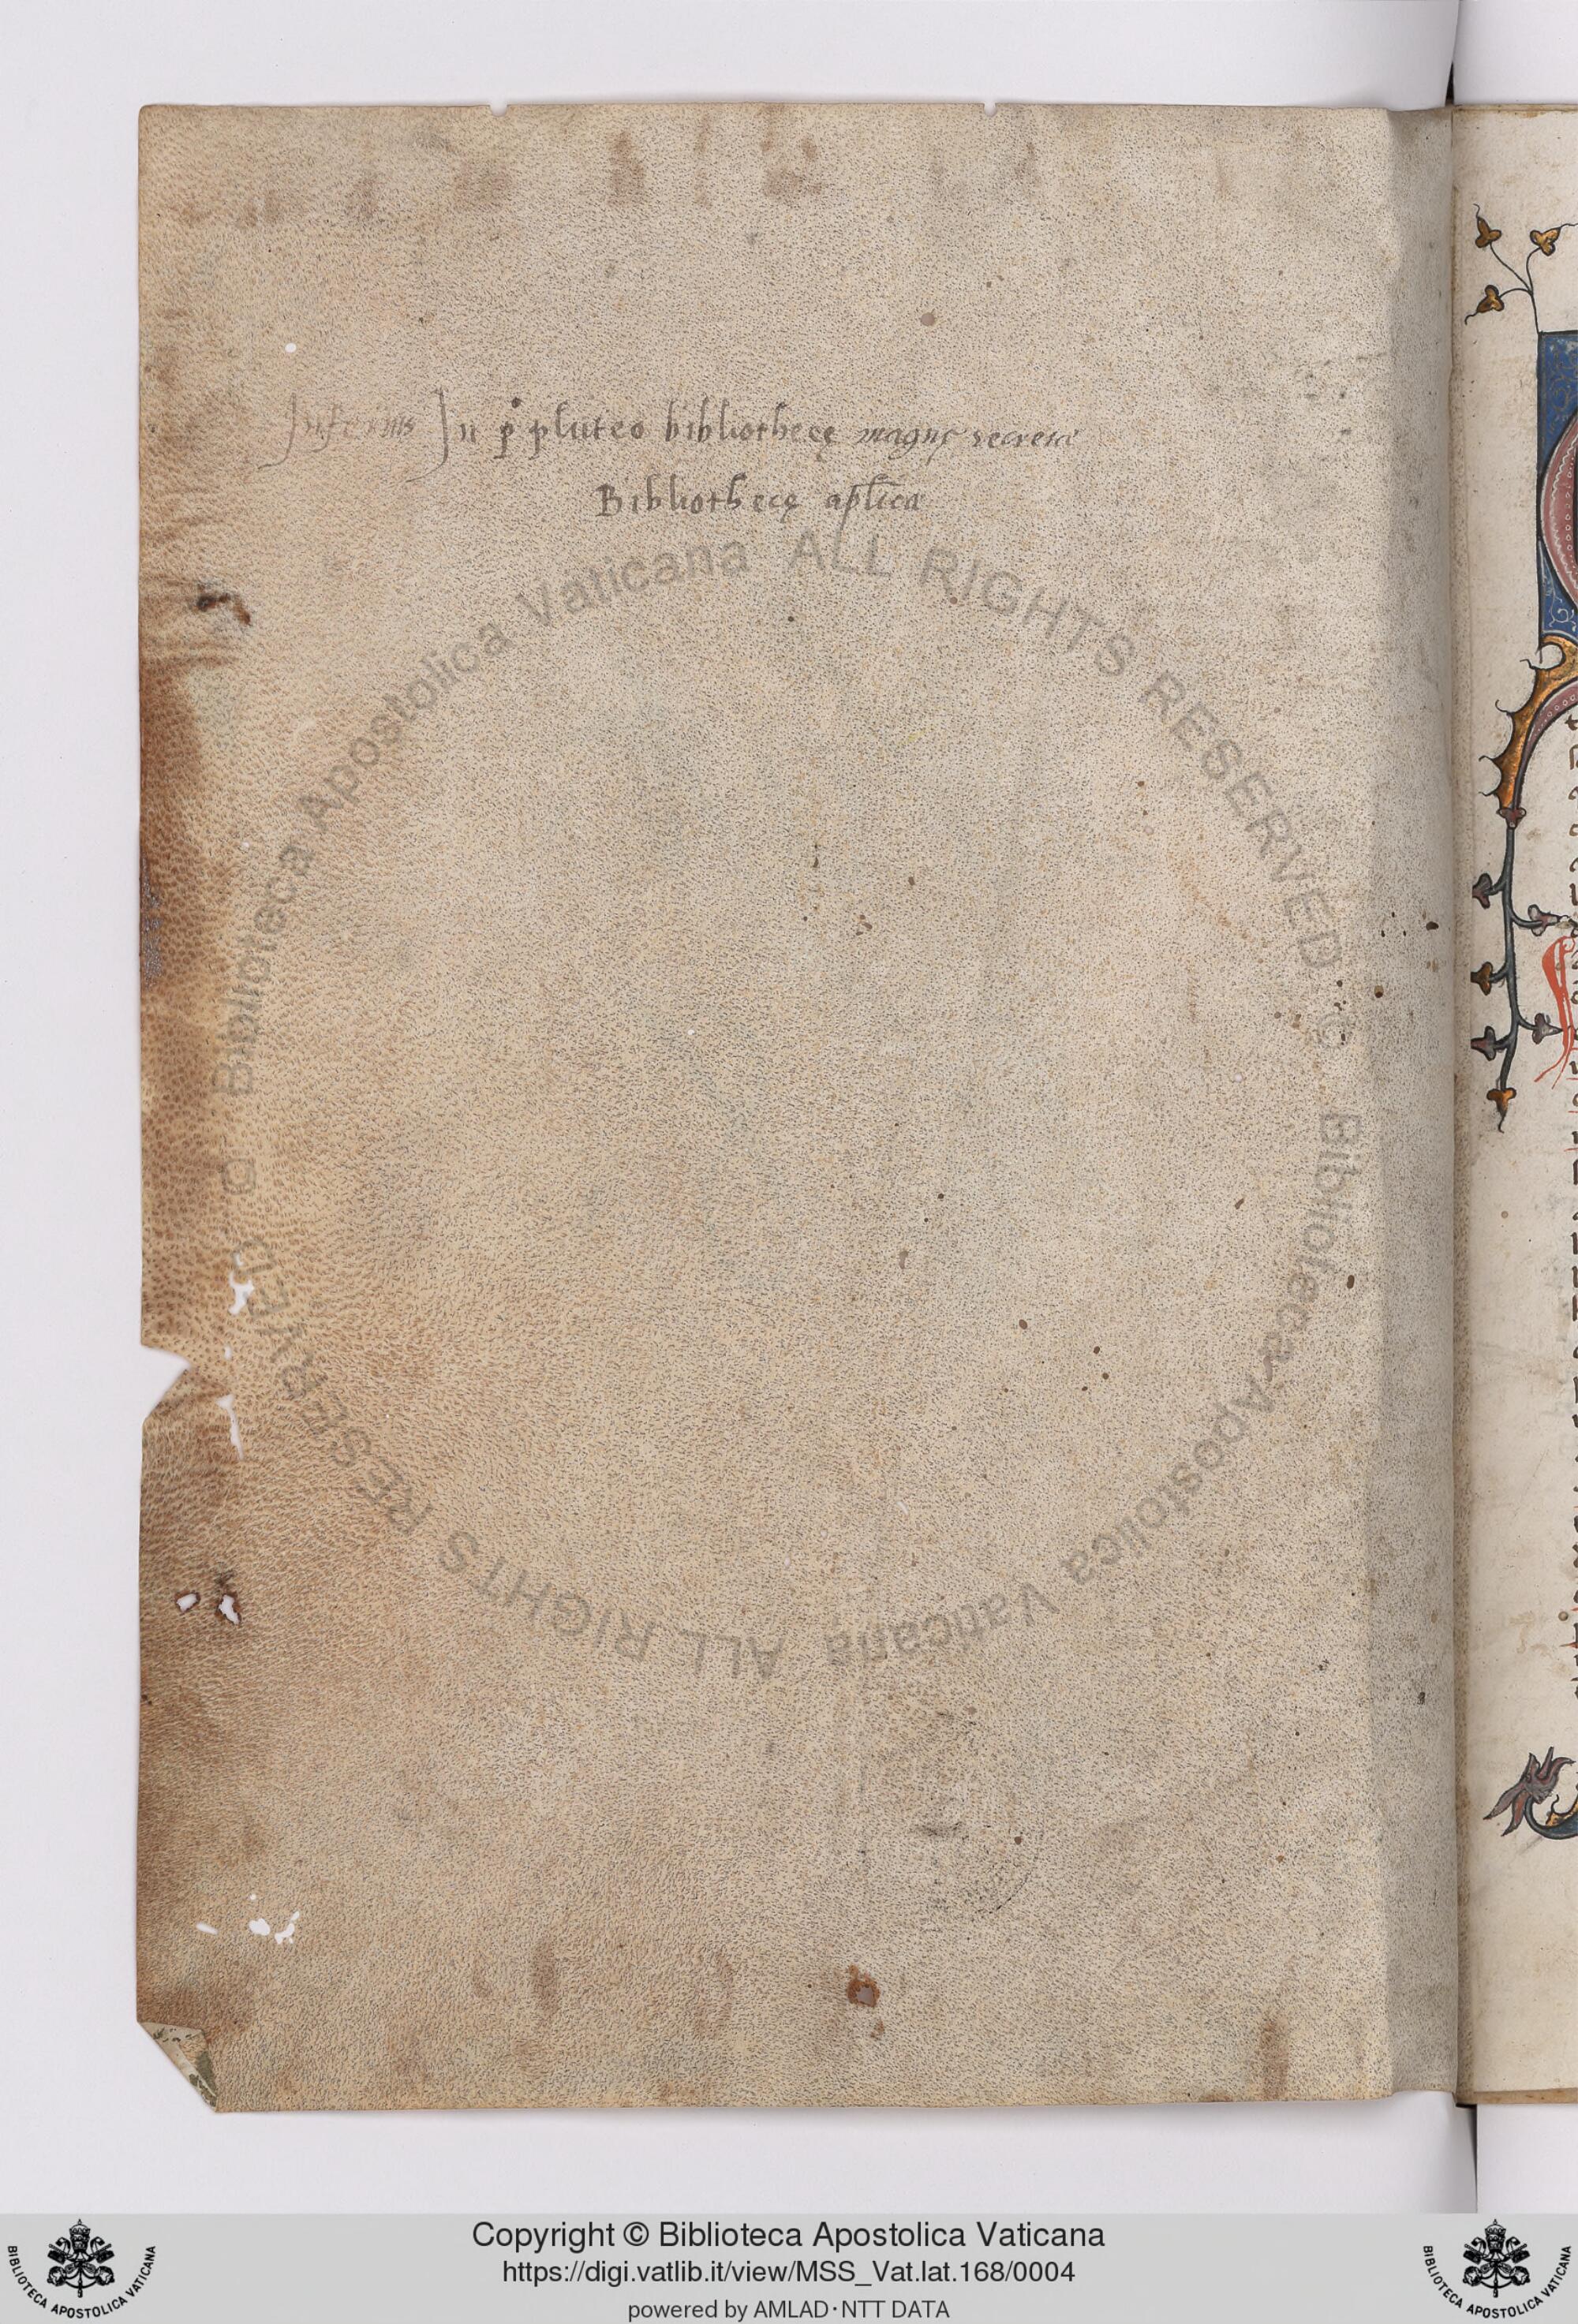 Inferius In pº pluteo bibliothecę magnę secretæ
Bibliothecę aplicæ
Biblioteca Apostolica Vaticana ALL RIGHTS RESERVED ©
Biblioteca Apostolica Vaticana ALL RIGHTS RESERVED ©
Copyright © Biblioteca Apostolica Vaticana
https://digi.vatlib.it/view/MSS_Vat.lat.168/0004
powered by AMLAD·NTT DATA
BIBLIOTECA APOSTOLICA VATICANA
BIBLIOTECA APOSTOLICA VATICANA